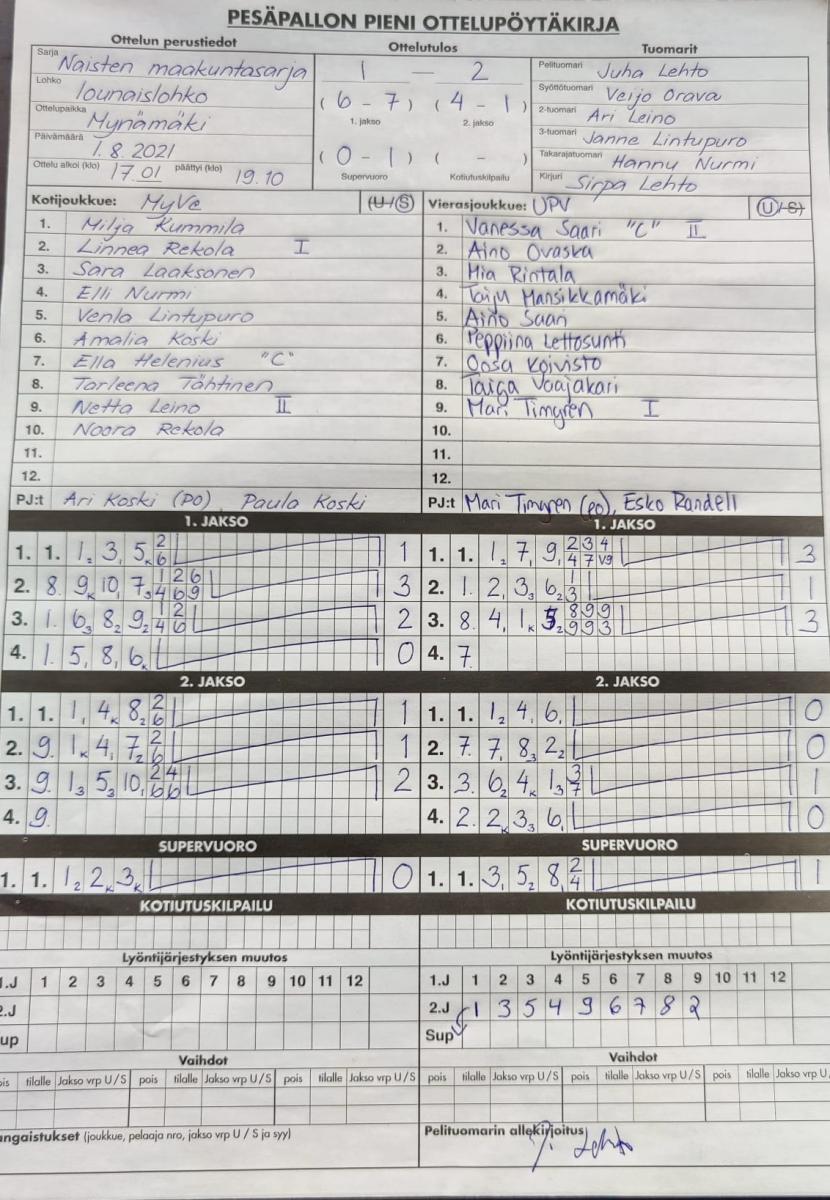 PESÄPALLON PIENI OTTELUPÖYTÄKIRJA
Ottelun perustiedot
Ottelutulos
Tuomarit
Sarja Naisten maakuntasarja
Lohko lounaislohko
Ottelupaikka Mynämäki
Päivämäärä 1.8.2021
Ottelu alkoi (klo) 17.01 päättyi (klo) 19.10
1 — 2
(6 - 7) (4 - 1)
1. jakso 2. jakso
(0 - 1) ( - )
Supervuoro Kotiutuskilpailu
Pelituomari Juha Lehto
Syöttötuomari Veijo Orava
2-tuomari Ari Leino
3-tuomari Janne Lintupuro
Takarajatuomari Hannu Nurmi
Kirjuri Sirpa Lehto
Kotijoukkue: MyVe (U/S)
1. Milja Kummila
2. Linnea Rekola I
3. Sara Laaksonen
4. Elli Nurmi
5. Venla Lintupuro
6. Amalia Koski
7. Ella Helenius "C"
8. Tarleena Tähtinen
9. Netta Leino II
10. Noora Rekola
11.
12.
PJ:t Ari Koski (PO) Paula Koski
Vierasjoukkue: UPV (U/S)
1. Vanessa Saari "C" II
2. Aino Ovaska
3. Mia Rintala
4. Taiju Mansikkamäki
5. Aino Saari
6. Peppiina Lettosunti
7. Oosa Koivisto
8. Taiga Vaajakari
9. Mari Timgren I
10.
11.
12.
PJ:t Mari Timgren (PO), Esko Randell
1. JAKSO
1. 1. 1₂ 3, 5ₖ 2 6 1
2. 8. 9ₖ 10, 7₃ 1 2 6 4 6 9 3
3. 1. 6₃ 8₂ 9₂ 1 2 4 6 2
4. 1. 5, 8, 6ₖ 0
1. JAKSO
1. 1. 1₂ 7, 9, 2 3 4 4 7 V9 3
2. 1. 2, 3₃ 6₂ 1 3 1
3. 8. 4, 1ₖ 5₂ 8 9 9 9 9 3 3
4. 7.
2. JAKSO
1. 1. 1, 4ₖ 8₂ 2 6 1
2. 9. 1ₖ 4, 7₂ 2 6 1
3. 9. 1₃ 5₃ 10, 2 4 6 6 2
4. 9.
2. JAKSO
1. 1. 1₂ 4, 6, 0
2. 7. 7, 8₃ 2₂ 0
3. 3. 6₂ 4ₖ 1₃ 3 7 1
4. 2. 2ₖ 3₃ 6, 0
SUPERVUORO
1. 1. 1₂ 2ₖ 3ₖ 0
SUPERVUORO
1. 1. 3, 5₂ 8, 2 4 1
KOTIUTUSKILPAILU
KOTIUTUSKILPAILU
Lyöntijärjestyksen muutos
1.J 1 2 3 4 5 6 7 8 9 10 11 12
2.J
up
Lyöntijärjestyksen muutos
1.J 1 2 3 4 5 6 7 8 9 10 11 12
2.J 1 3 5 4 9 6 7 8 2
Sup
Vaihdot
ois tilalle Jakso vrp U/S pois tilalle Jakso vrp U/S pois tilalle Jakso vrp U/S
Vaihdot
pois tilalle Jakso vrp U/S pois tilalle Jakso vrp U/S pois tilalle Jakso vrp U
ngaistukset (joukkue, pelaaja nro, jakso vrp U / S ja syy)
Pelituomarin allekirjoitus
J. Lehto